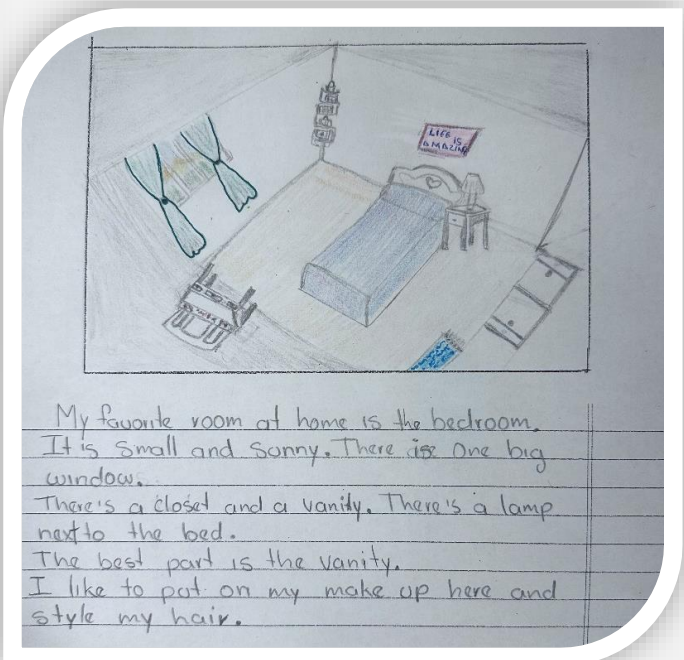 LIFE
IS
AMAZING
My favorite room at home is the bedroom.
It is small and sunny. There is one big
window.
There's a closet and a vanity. There's a lamp
next to the bed.
The best part is the vanity.
I like to put on my make up here and
style my hair.